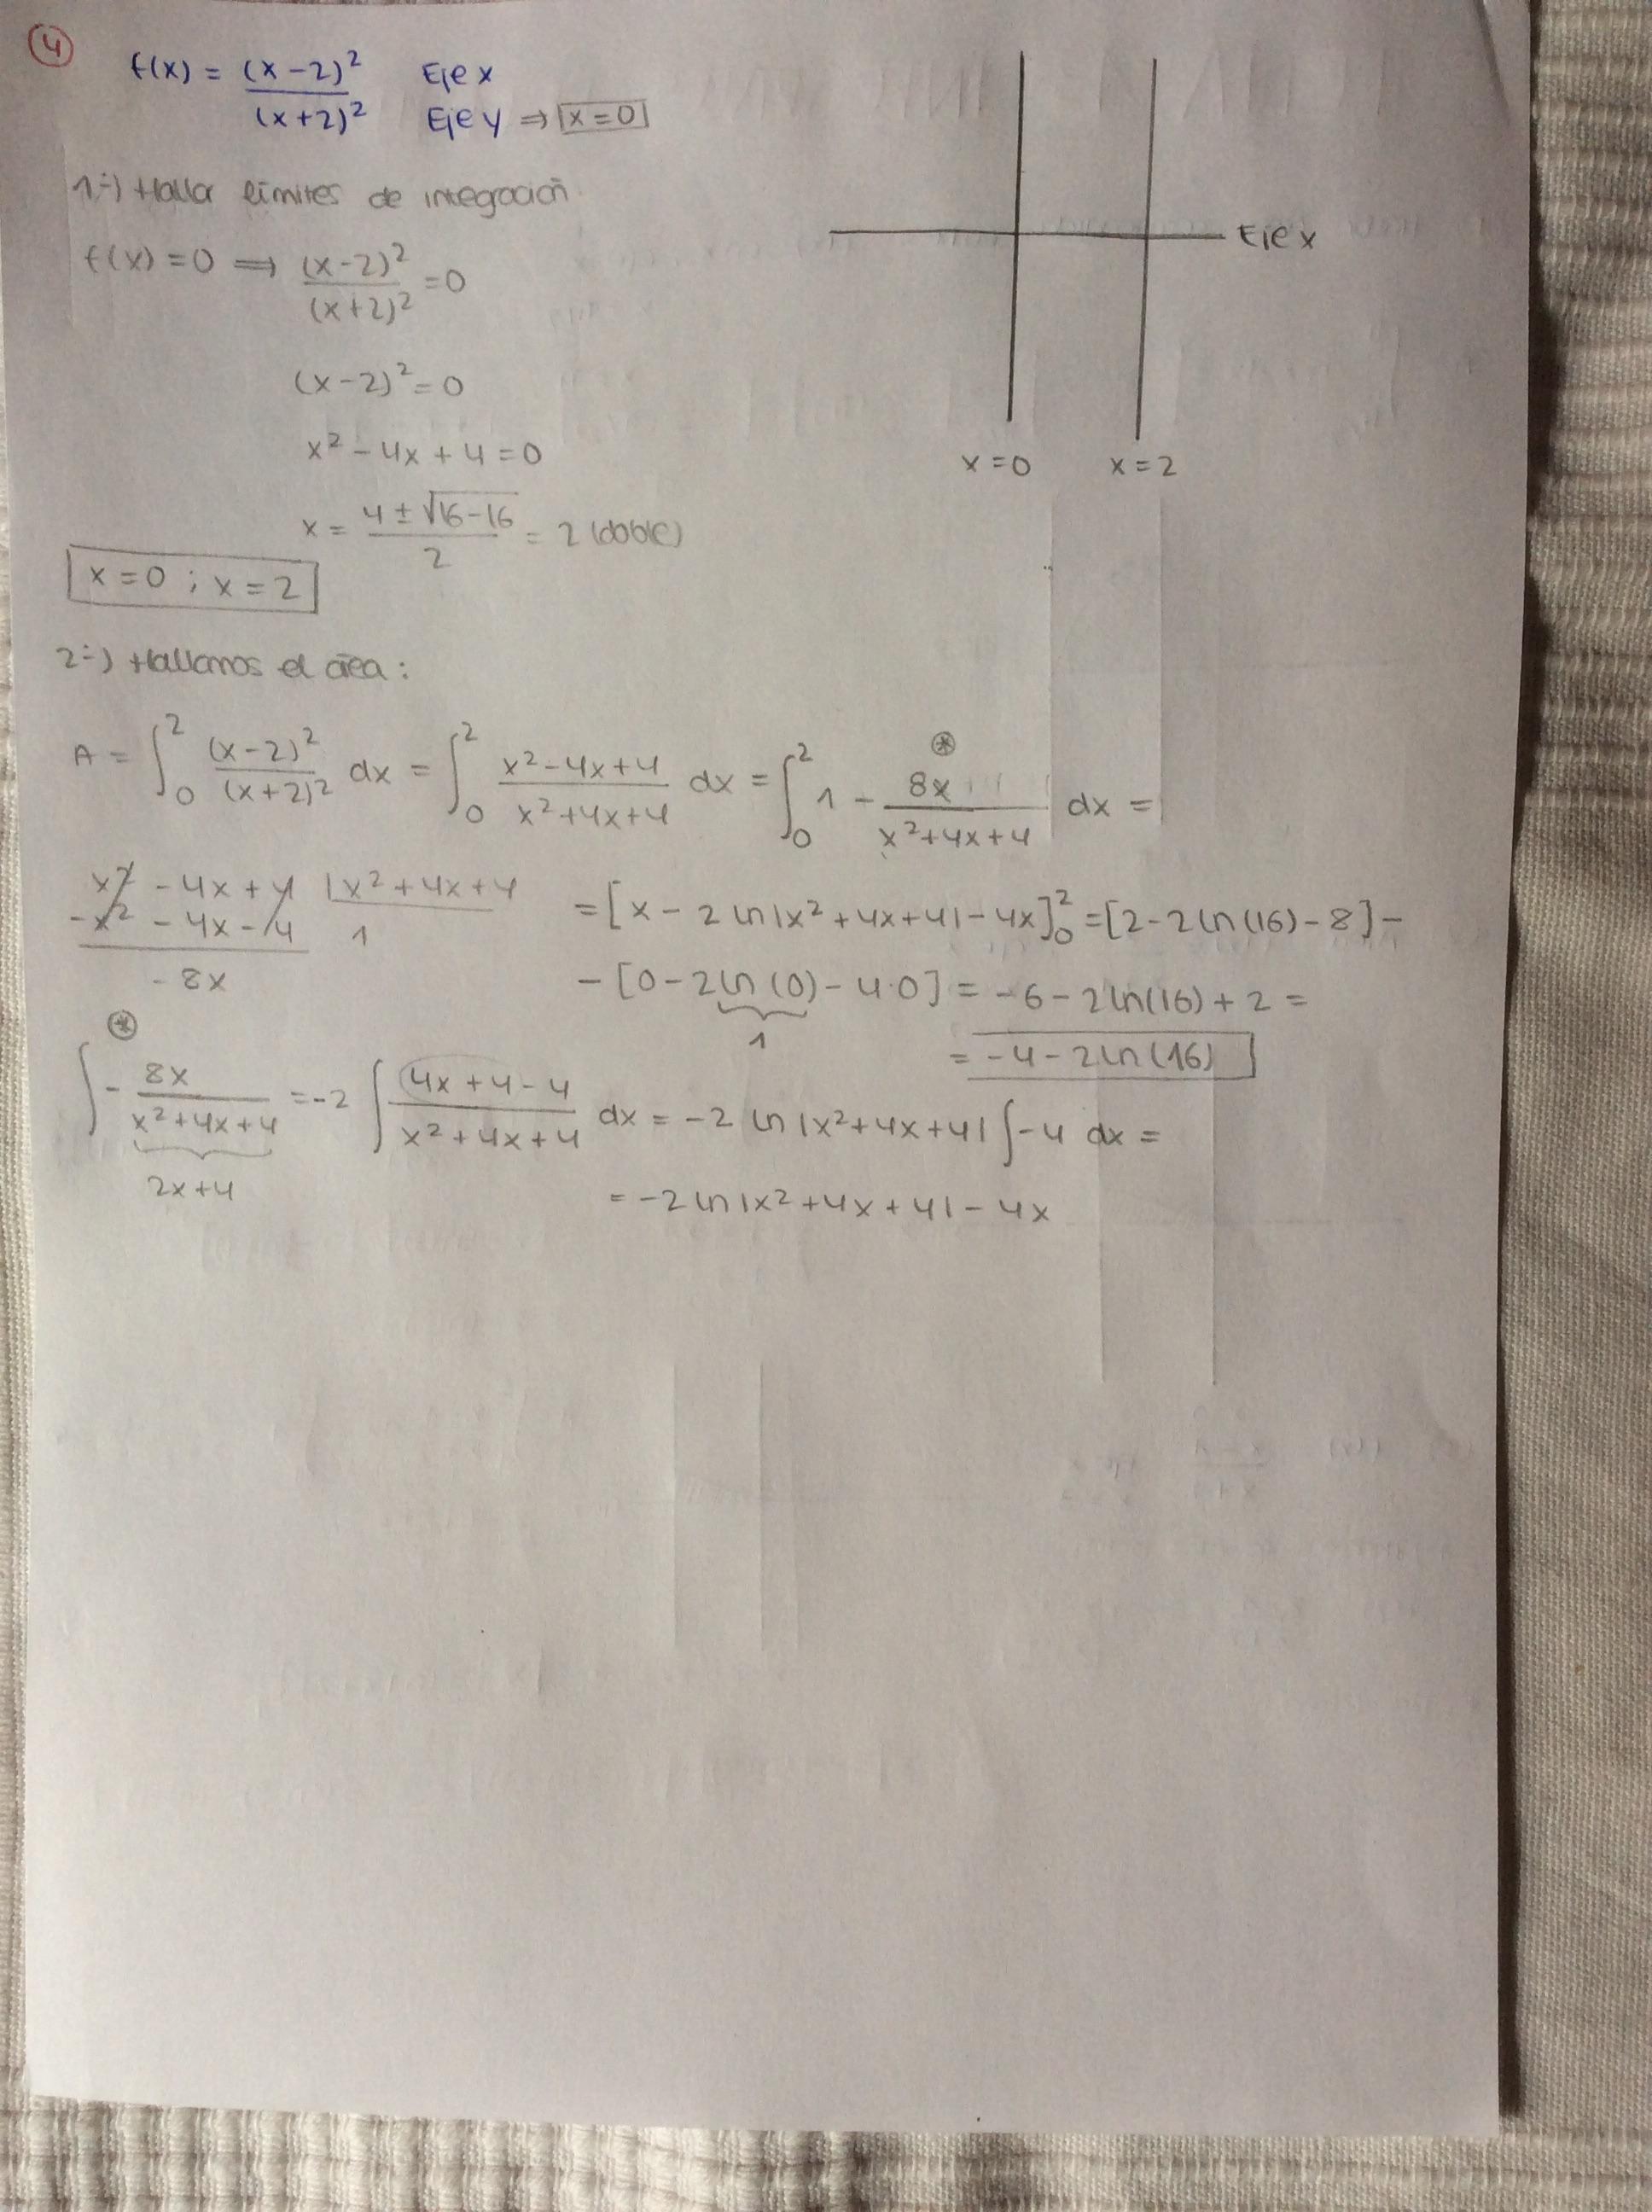 4
f(x) = (x-2)² / (x+2)² Eje x
Eje y ⇒ x=0
1º) Hallar límites de integración.
f(x)=0 ⟹ (x-2)² / (x+2)² = 0
(x-2)² = 0
x² - 4x + 4 = 0
x = (4 ± √16-16) / 2 = 2 (doble)
x=0 ; x=2
Eje x
x=0 x=2
2º) Hallamos el área:
A = ∫₀² (x-2)² / (x+2)² dx = ∫₀² (x²-4x+4) / (x²+4x+4) dx = ∫₀² 1 - 8x / (x²+4x+4) dx =
*
x² - 4x + 4 | x² + 4x + 4
-x² - 4x - 4 1
-8x
= [x - 2 ln|x² + 4x + 4| - 4x]₀² = [2 - 2 ln(16) - 8] -
- [0 - 2 ln(0) - 4·0] = -6 - 2 ln(16) + 2 =
1
= -4 - 2 ln(16)
*
∫ - 8x / (x²+4x+4) = -2 ∫ (4x+4-4) / (x²+4x+4) dx = -2 ln|x²+4x+4| ∫ -4 dx =
2x+4
= -2 ln|x²+4x+4| - 4x